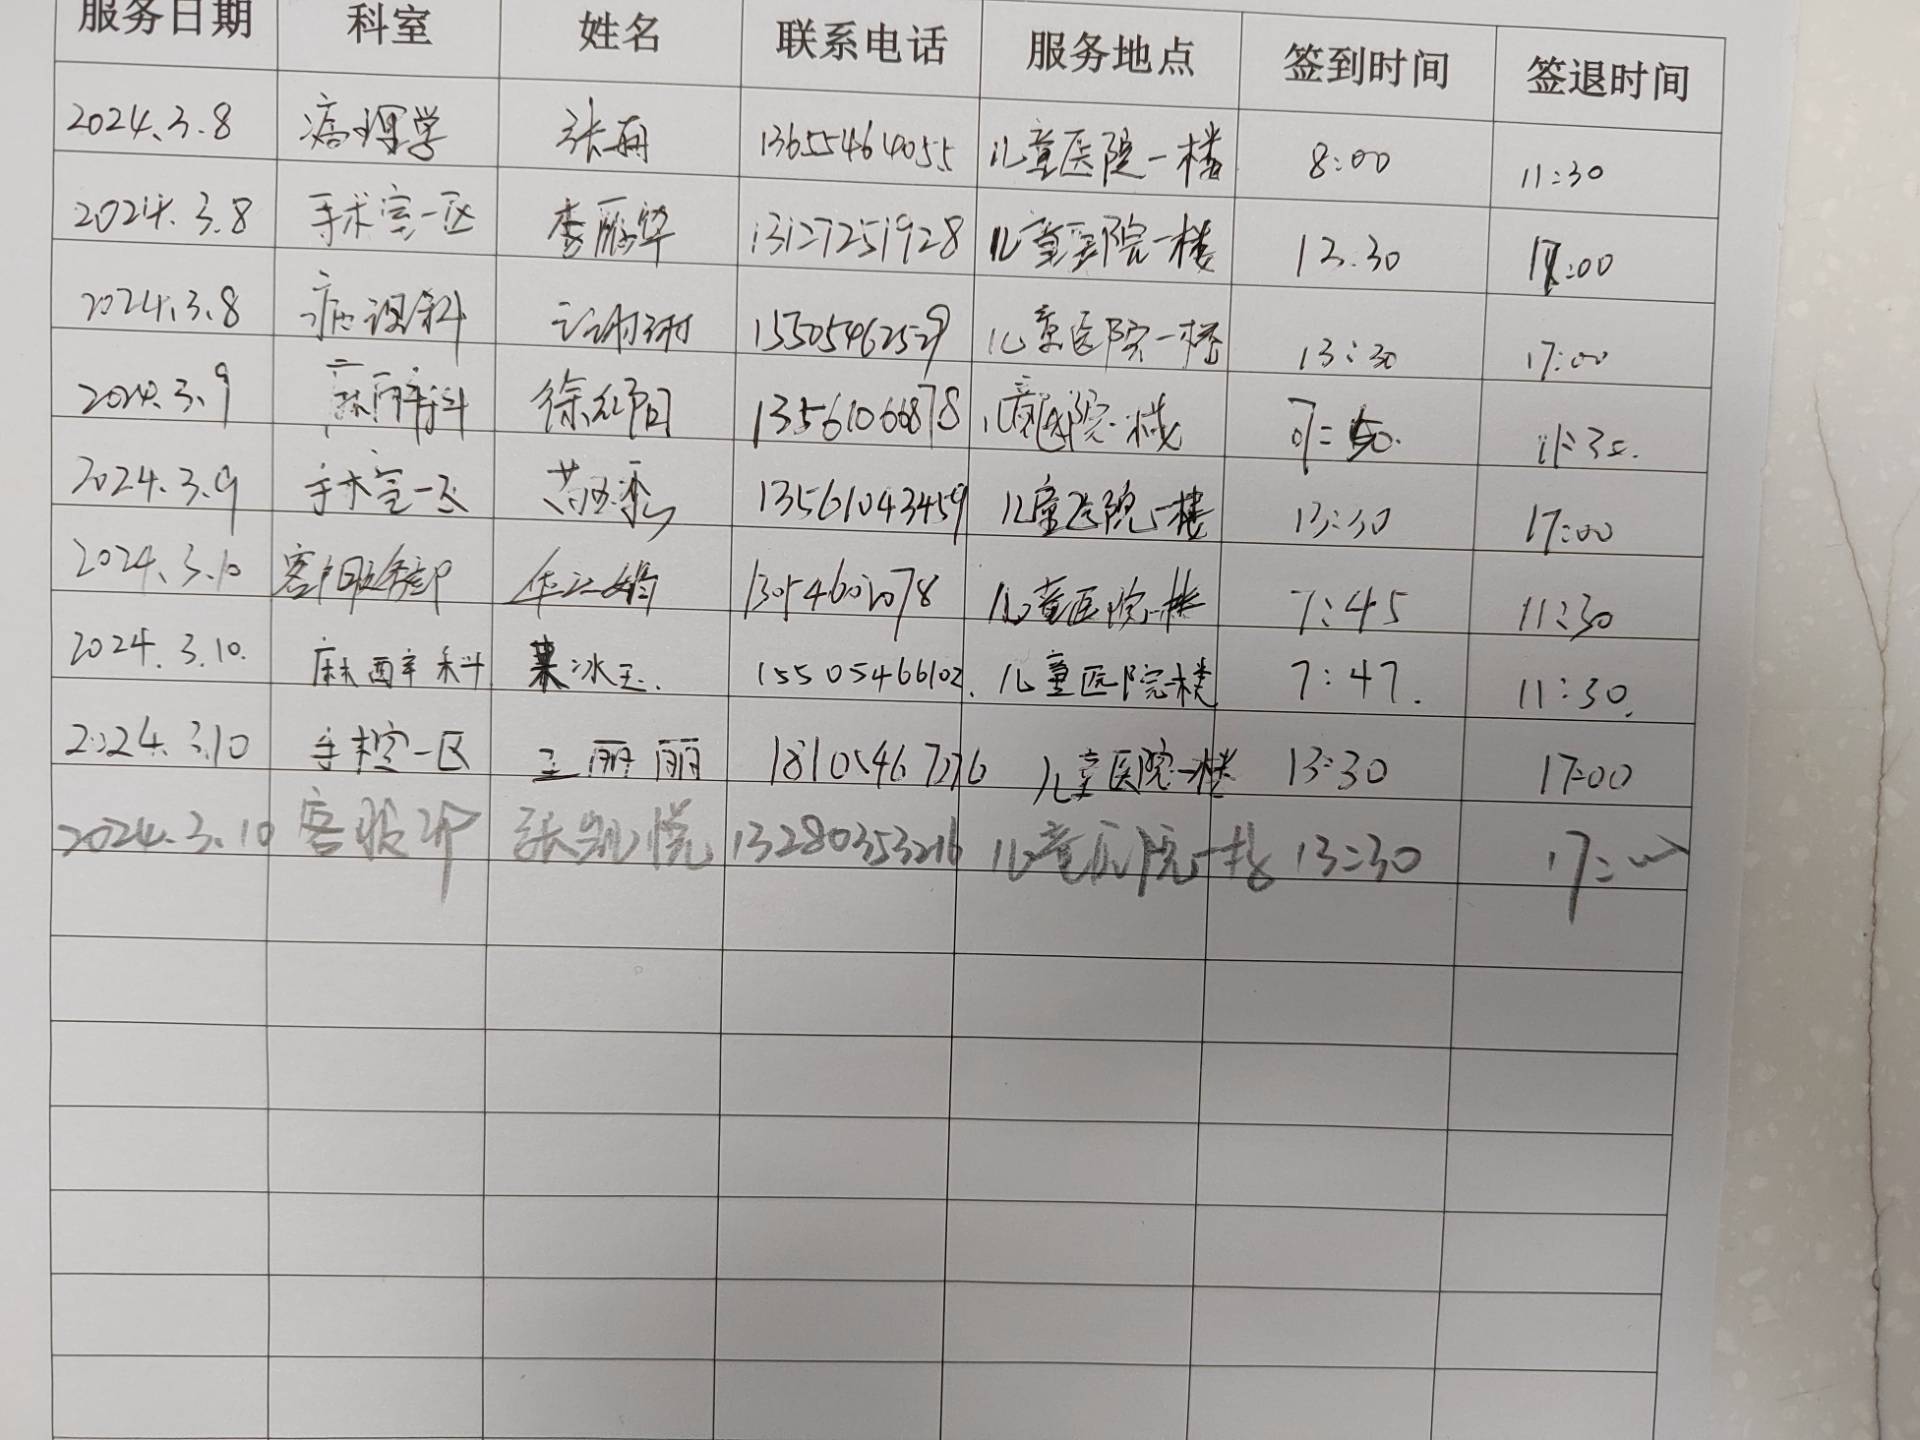 服务日期 科室 姓名 联系电话 服务地点 签到时间 签退时间
2024.3.8 病理学 张丽 13655464055 儿童医院一楼 8:00 11:30
2024.3.8 手术室一区 李丽华 13127251928 儿童医院一楼 12.30 17:00
2024.3.8 病理科 15505462529 儿童医院一楼 13:30 17:00
2024.3.9 麻醉科 徐红阳 13561066878 儿童医院一楼 7:50. 11:30.
2024.3.9 手术室一区 13561043459 儿童医院一楼 13:30 17:00
2024.3.10 客户服务部 儿童医院一楼 7:45 11:30
2024.3.10. 麻醉科 冰玉. 15505466102. 儿童医院一楼 7:47. 11:30.
2024.3.10 手术室一区 王丽丽 18105467276 儿童医院一楼 13:30 17:00
2024.3.10 客服部 张凯悦 13280353216 儿童医院一楼 13:30 17:00